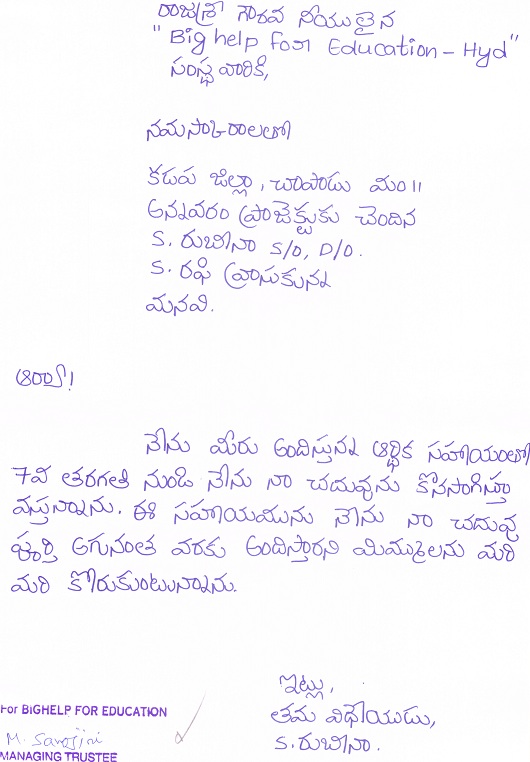 రాజశ్రీ గౌరవ నీయులైన
"Big help for Education - Hyd"
సంస్థ వారికి,
నమస్కారాలతో
కడప జిల్లా, చాపాడు మం॥
అన్నవరం ప్రాజెక్టుకు చెందిన
S. రుబీనా S/O, D/O.
S. రఫి వ్రాసుకున్న
మనవి.
ఆర్యా!
నేను మీరు అందిస్తున్న ఆర్థిక సహాయంతో
7వ తరగతి నుండి నేను నా చదువును కొనసాగిస్తూ
వస్తున్నాను. ఈ సహాయమును నేను నా చదువు
పూర్తి అగునంత వరకు అందిస్తారని మిమ్ములను మరి
మరి కోరుకుంటున్నాను.
ఇట్లు,
తమ విధేయుడు,
S. రుబీనా.
For BIGHELP FOR EDUCATION
M. Sarojini
MANAGING TRUSTEE